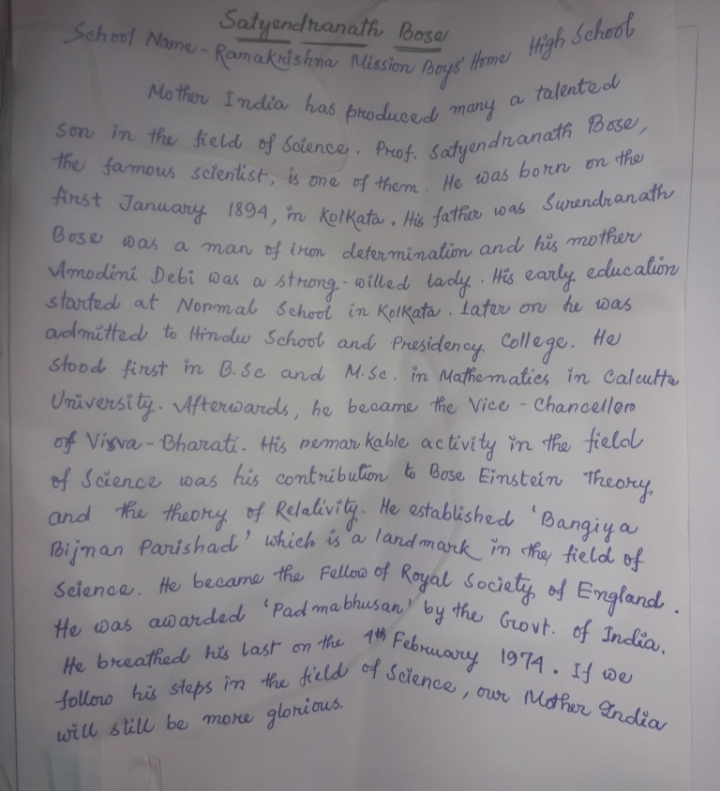 Satyendranath Bose
School Name - Ramakrishna Mission Boys' Home High School
Mother India has produced many a talented
son in the field of Science. Prof. Satyendranath Bose,
the famous scientist, is one of them. He was born on the
first January 1894, in Kolkata. His father was Surendranath
Bose was a man of iron determination and his mother
Amodini Debi was a strong-willed lady. His early education
started at Normal School in Kolkata. Later on he was
admitted to Hindu School and Presidency College. He
stood first in B.Sc and M.Sc. in Mathematics in Calcutta
University. Afterwards, he became the Vice-Chancellor
of Visva-Bharati. His remarkable activity in the field
of Science was his contribution to Bose Einstein Theory,
and the theory of Relativity. He established 'Bangiya
Bijnan Parishad' which is a landmark in the field of
Science. He became the Fellow of Royal Society of England.
He was awarded 'Padmabhusan' by the Govt. of India.
He breathed his last on the 4th February 1974. If we
follow his steps in the field of Science, our Mother India
will still be more glorious.